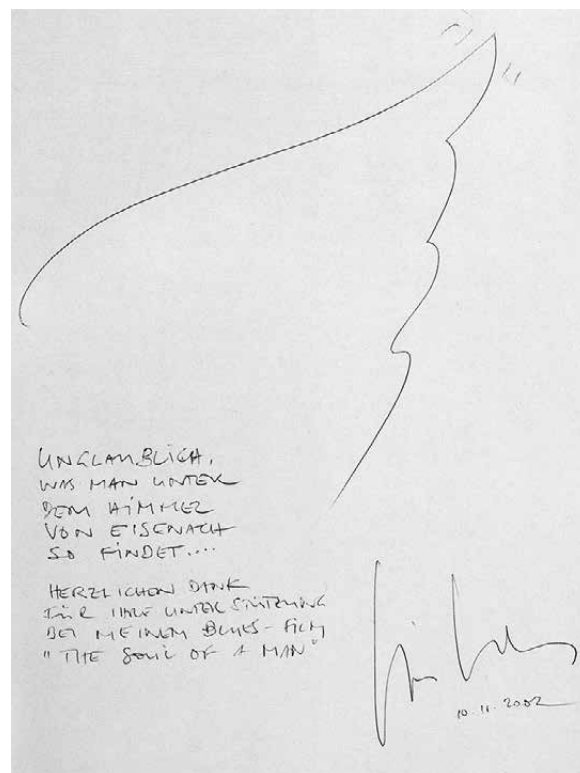 UNGLAUBLICH,
WAS MAN UNTER
DEM HIMMEL
VON EISENACH
SO FINDET....
HERZLICHEN DANK
FÜR IHRE UNTERSTÜTZUNG
BEI MEINEM BLUES-FILM
"THE SOUL OF A MAN"
10.11.2002